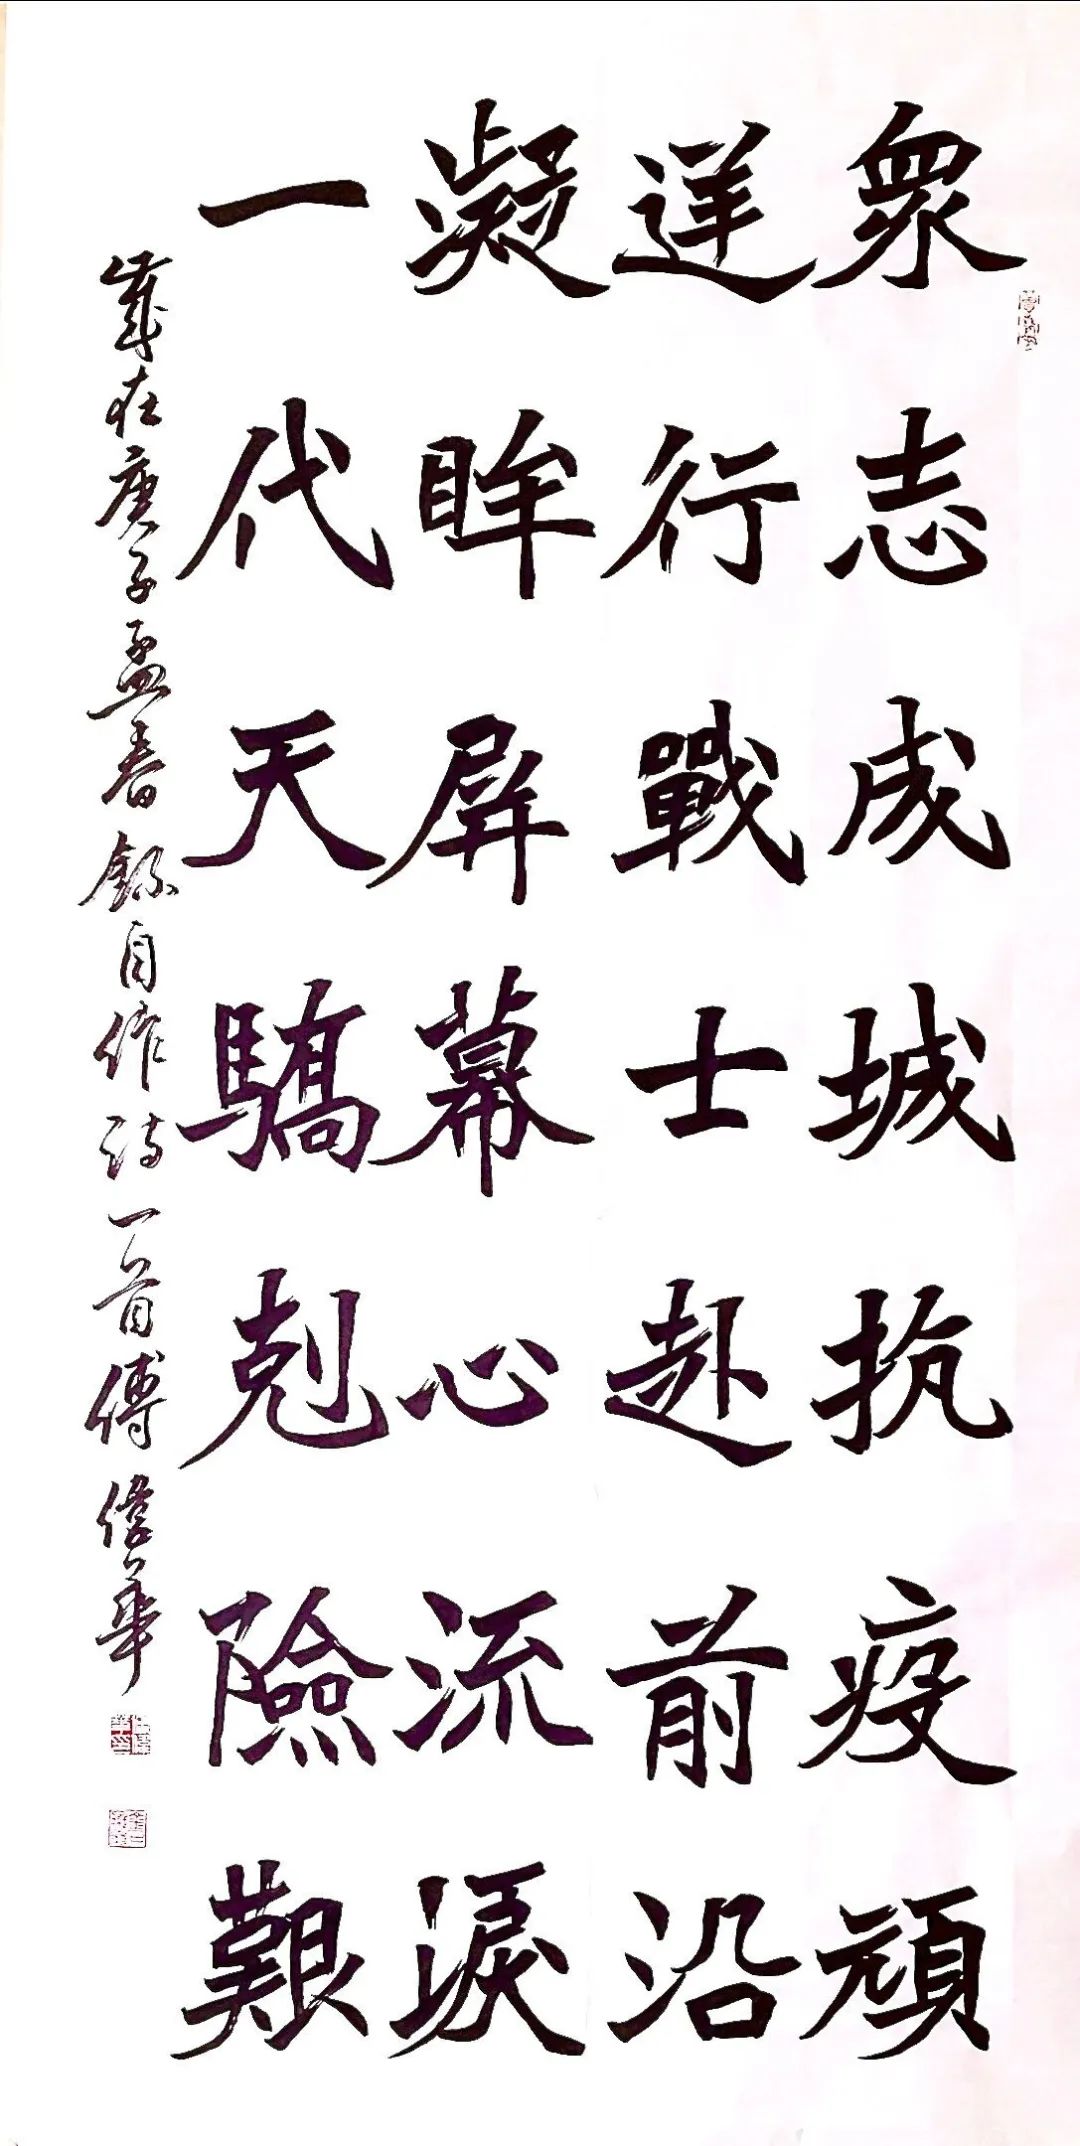 衆志成城抗疫頑
送行戰士赴前沿
凝眸屏幕心流淚
一代天驕剋險艱
歲在庚子孟春錄自作詩一首傅偉華